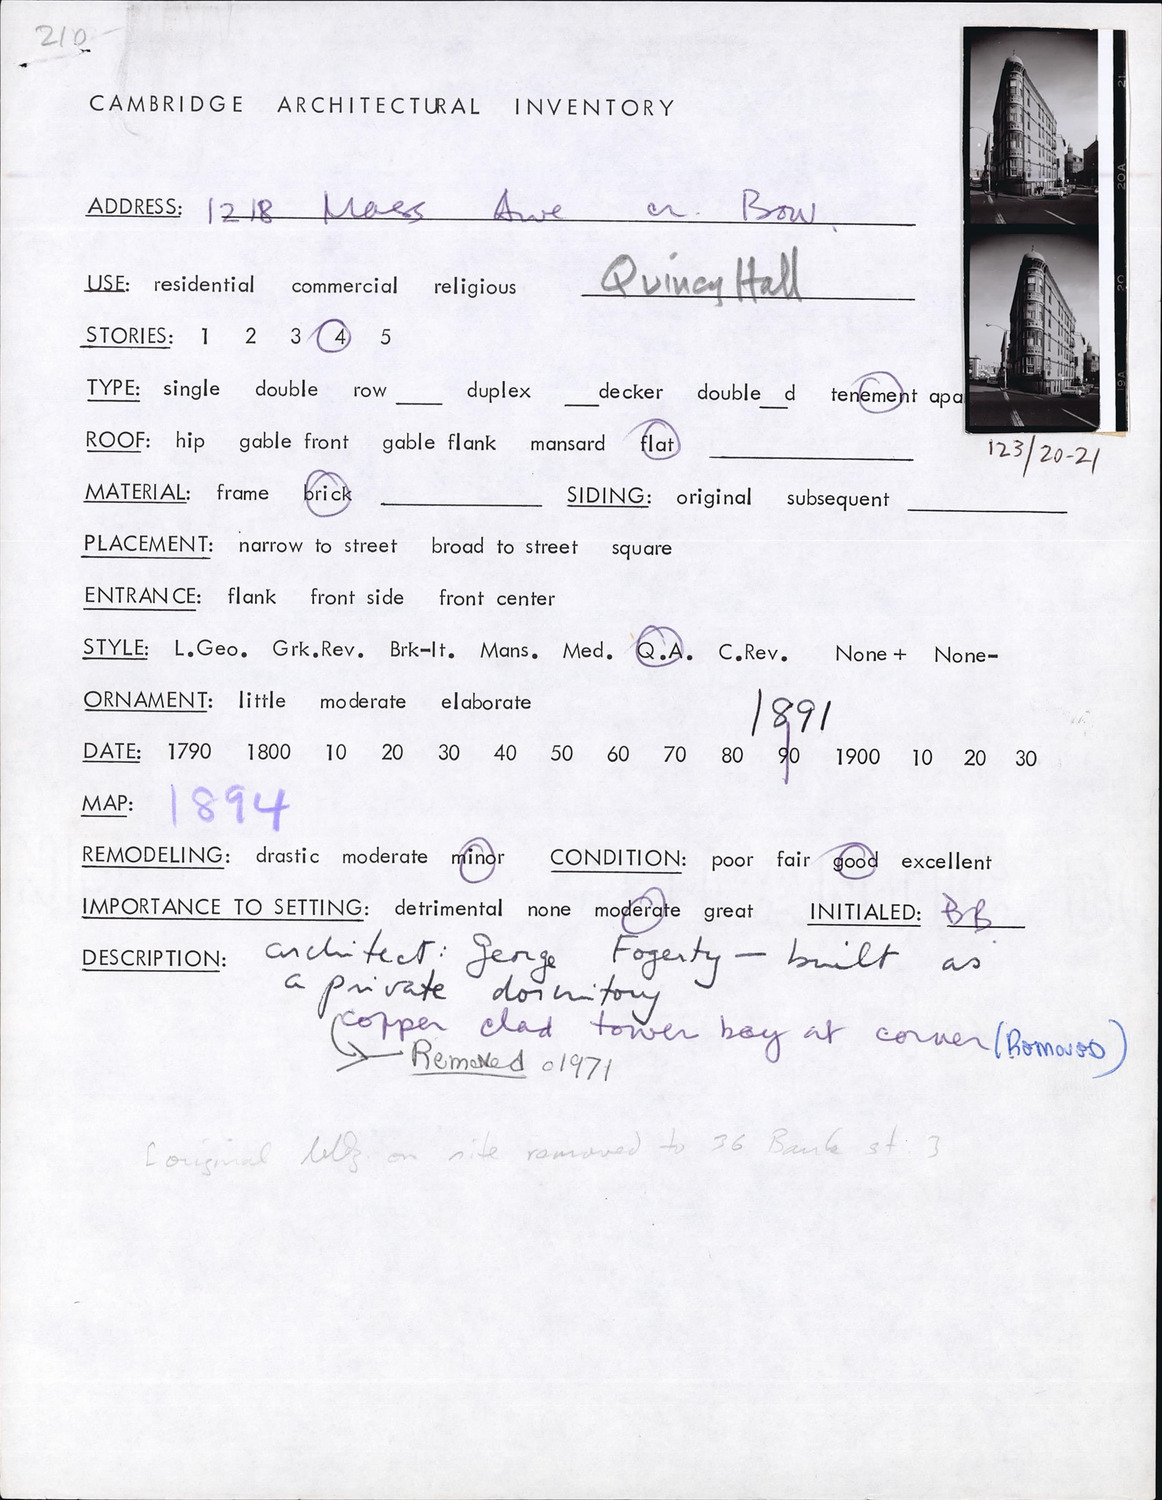 210
CAMBRIDGE ARCHITECTURAL INVENTORY
ADDRESS: 1218 Mass Ave cr. Bow
USE: residential commercial religious Quincy Hall
STORIES: 1 2 3 4 5
TYPE: single double row ____ duplex ___decker double__d tenement apa
ROOF: hip gable front gable flank mansard flat
123/20-21
MATERIAL: frame brick SIDING: original subsequent
PLACEMENT: narrow to street broad to street square
ENTRANCE: flank front side front center
STYLE: L.Geo. Grk.Rev. Brk-It. Mans. Med. Q.A. C.Rev. None+ None-
ORNAMENT: little moderate elaborate
1891
DATE: 1790 1800 10 20 30 40 50 60 70 80 90 1900 10 20 30
MAP: 1894
REMODELING: drastic moderate minor CONDITION: poor fair good excellent
IMPORTANCE TO SETTING: detrimental none moderate great INITIALED: BB
DESCRIPTION: architect: George Fogerty — built as
a private dormitory
copper clad tower bay at corner (Removed)
Removed c1971
[original bldg. on site removed to 36 Bank st.]
21
20A
20
19A